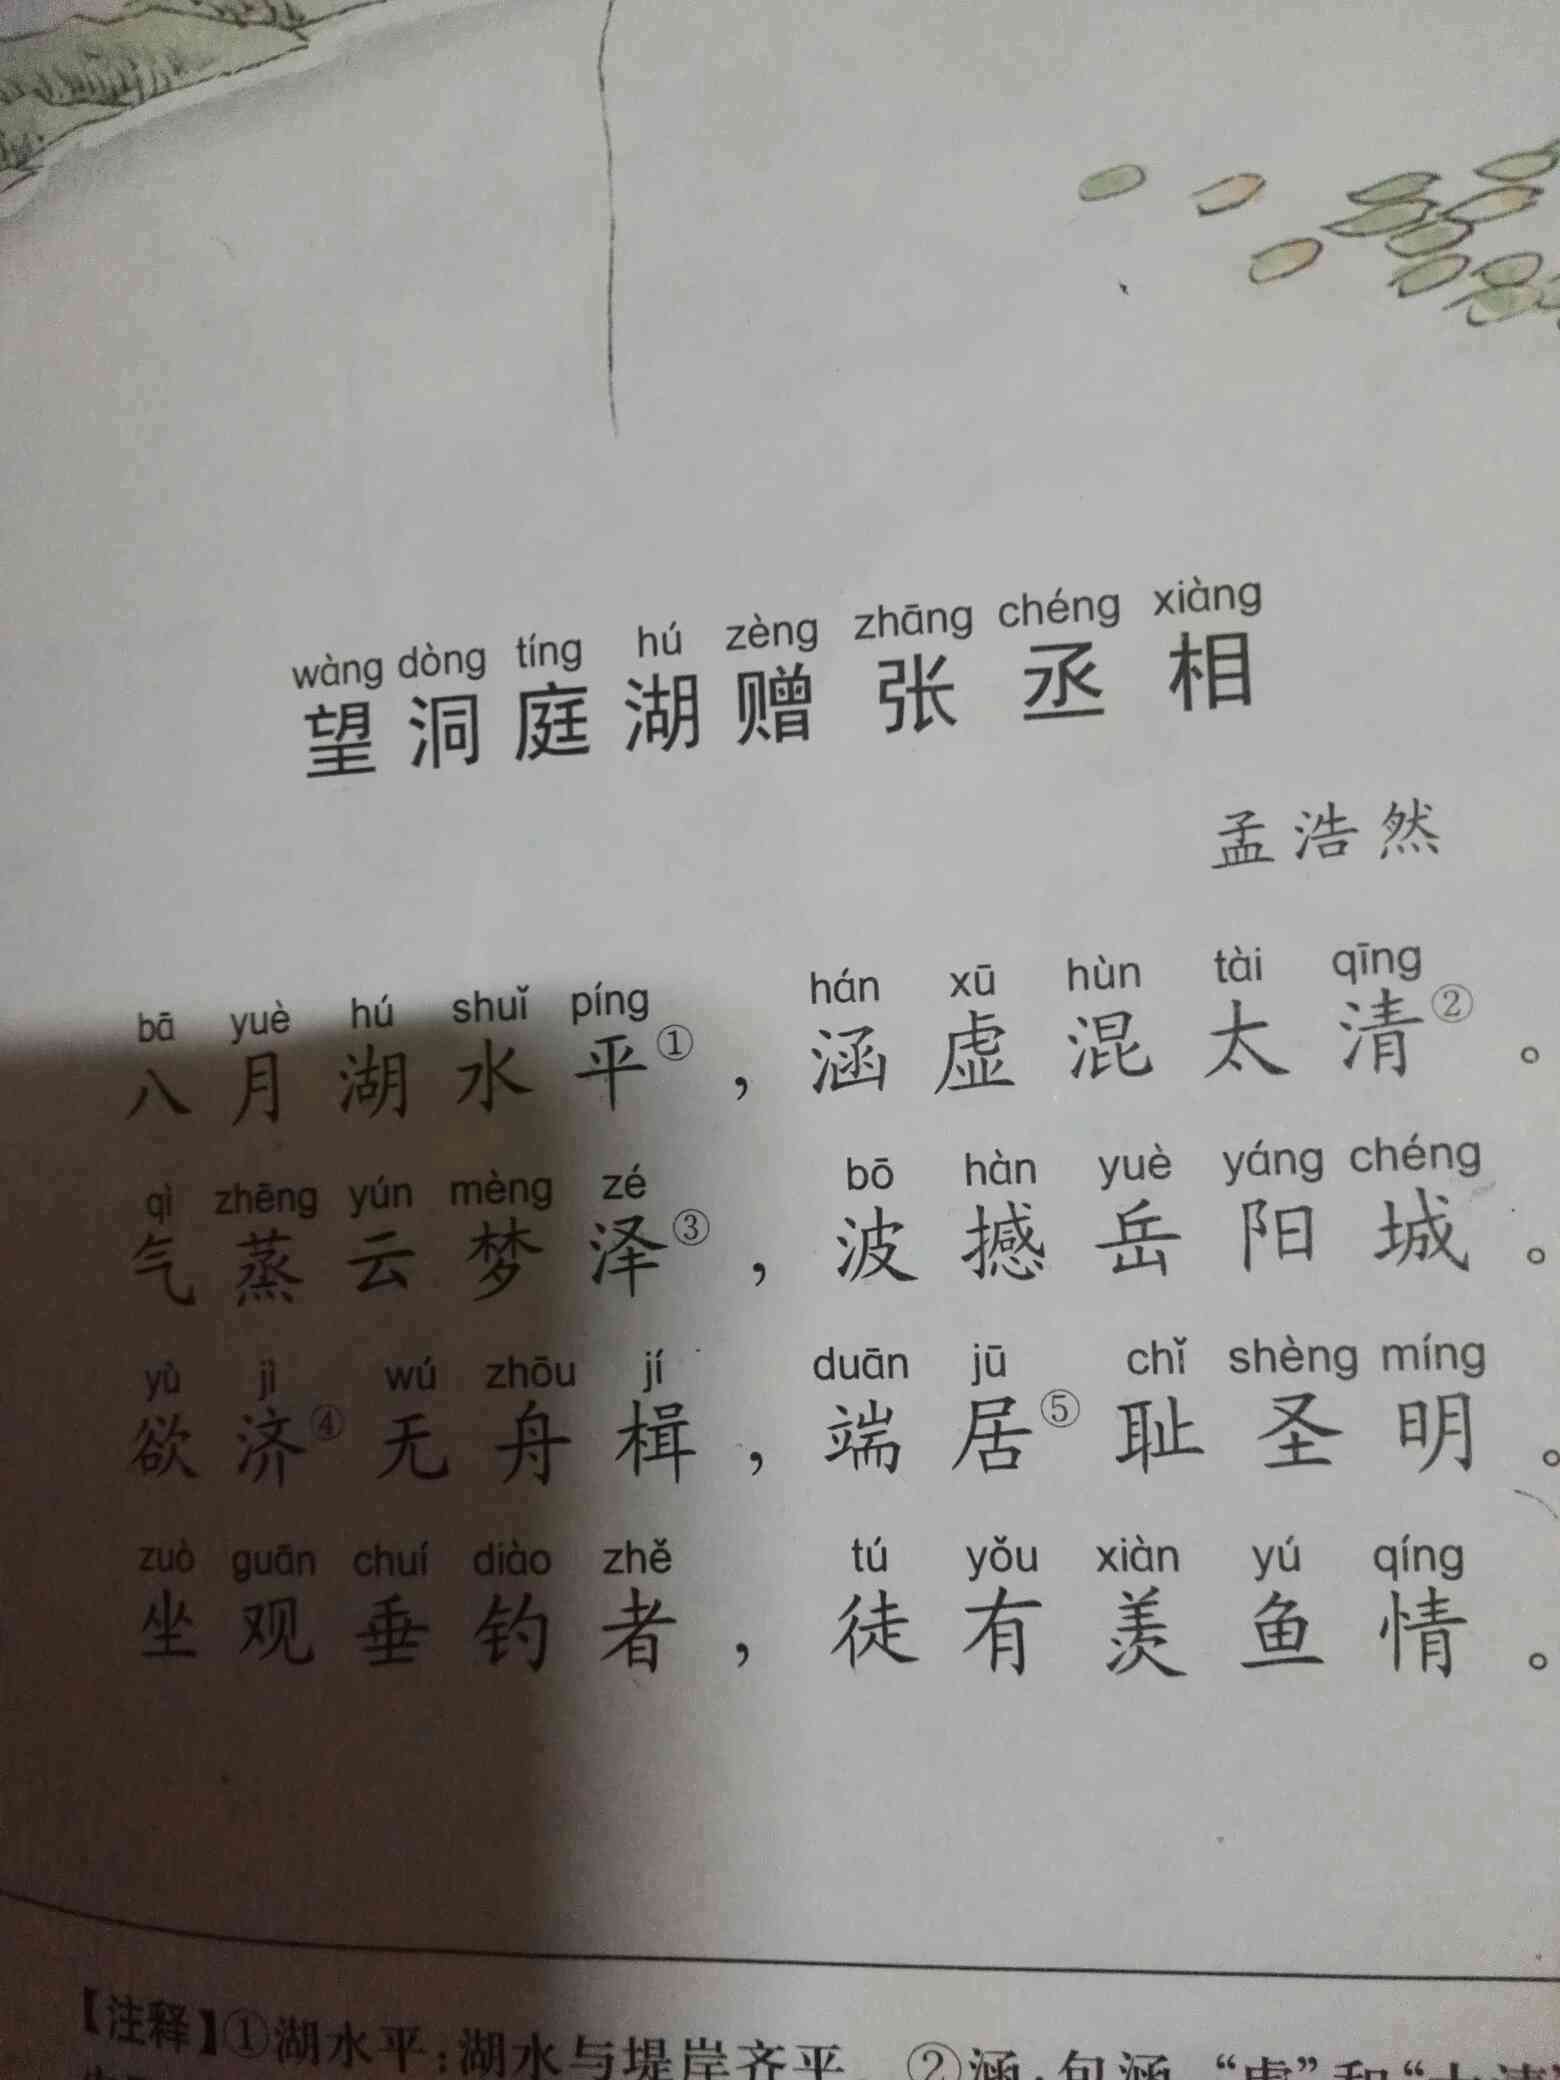 wàng dòng tíng hú zèng zhāng chéng xiàng
望洞庭湖赠张丞相
孟浩然
bā yuè hú shuǐ píng hán xū hùn tài qīng
八月湖水平①，涵虚混太清②。
qì zhēng yún mèng zé bō hàn yuè yáng chéng
气蒸云梦泽③，波撼岳阳城。
yù jì wú zhōu jí duān jū chǐ shèng míng
欲济④无舟楫，端居⑤耻圣明。
zuò guān chuí diào zhě tú yǒu xiàn yú qíng
坐观垂钓者，徒有羡鱼情。
【注释】①湖水平：湖水与堤岸齐平。②涵：包涵。“虚”和“太清”